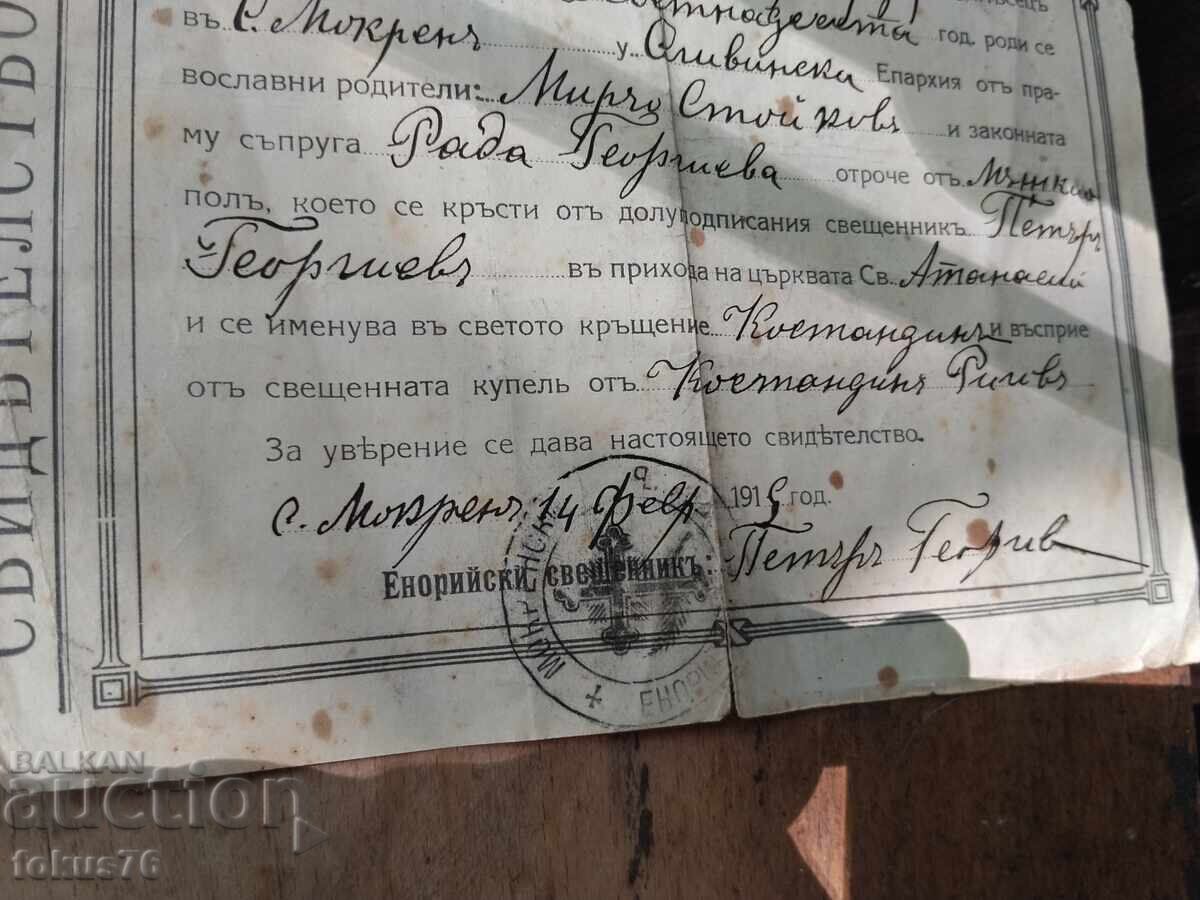 год. роди се
въ с. Мокренъ у Сливенска Епархия отъ пра-
вославни родители: Мирчо Стойковъ и законната
му съпруга Рада Георгиева отроче отъ мъжкио
полъ, което се кръсти отъ долуподписания свещенникъ Петъръ
Георгиевъ въ прихода на църквата Св. Атанасий
и се именува въ светото кръщение Костандинъ и въсприе
отъ свещенната купель отъ Костандинъ
За увѣрение се дава настоящето свидѣтелство.
с. Мокренъ 14 февр. 191 год.
Енорийски свещенникъ: Петъръ Георгиев
СВИДѢТЕЛСТВО
BALKAN
auction
fokus76